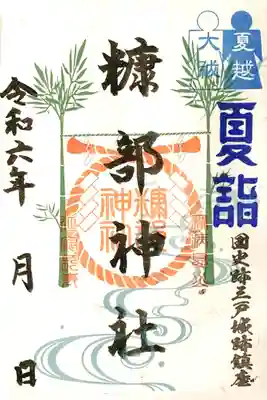 夏越
大祓
夏詣
国史跡三戸城跡鎮座
糠部神社
糠部
神社
令和六年 月 日